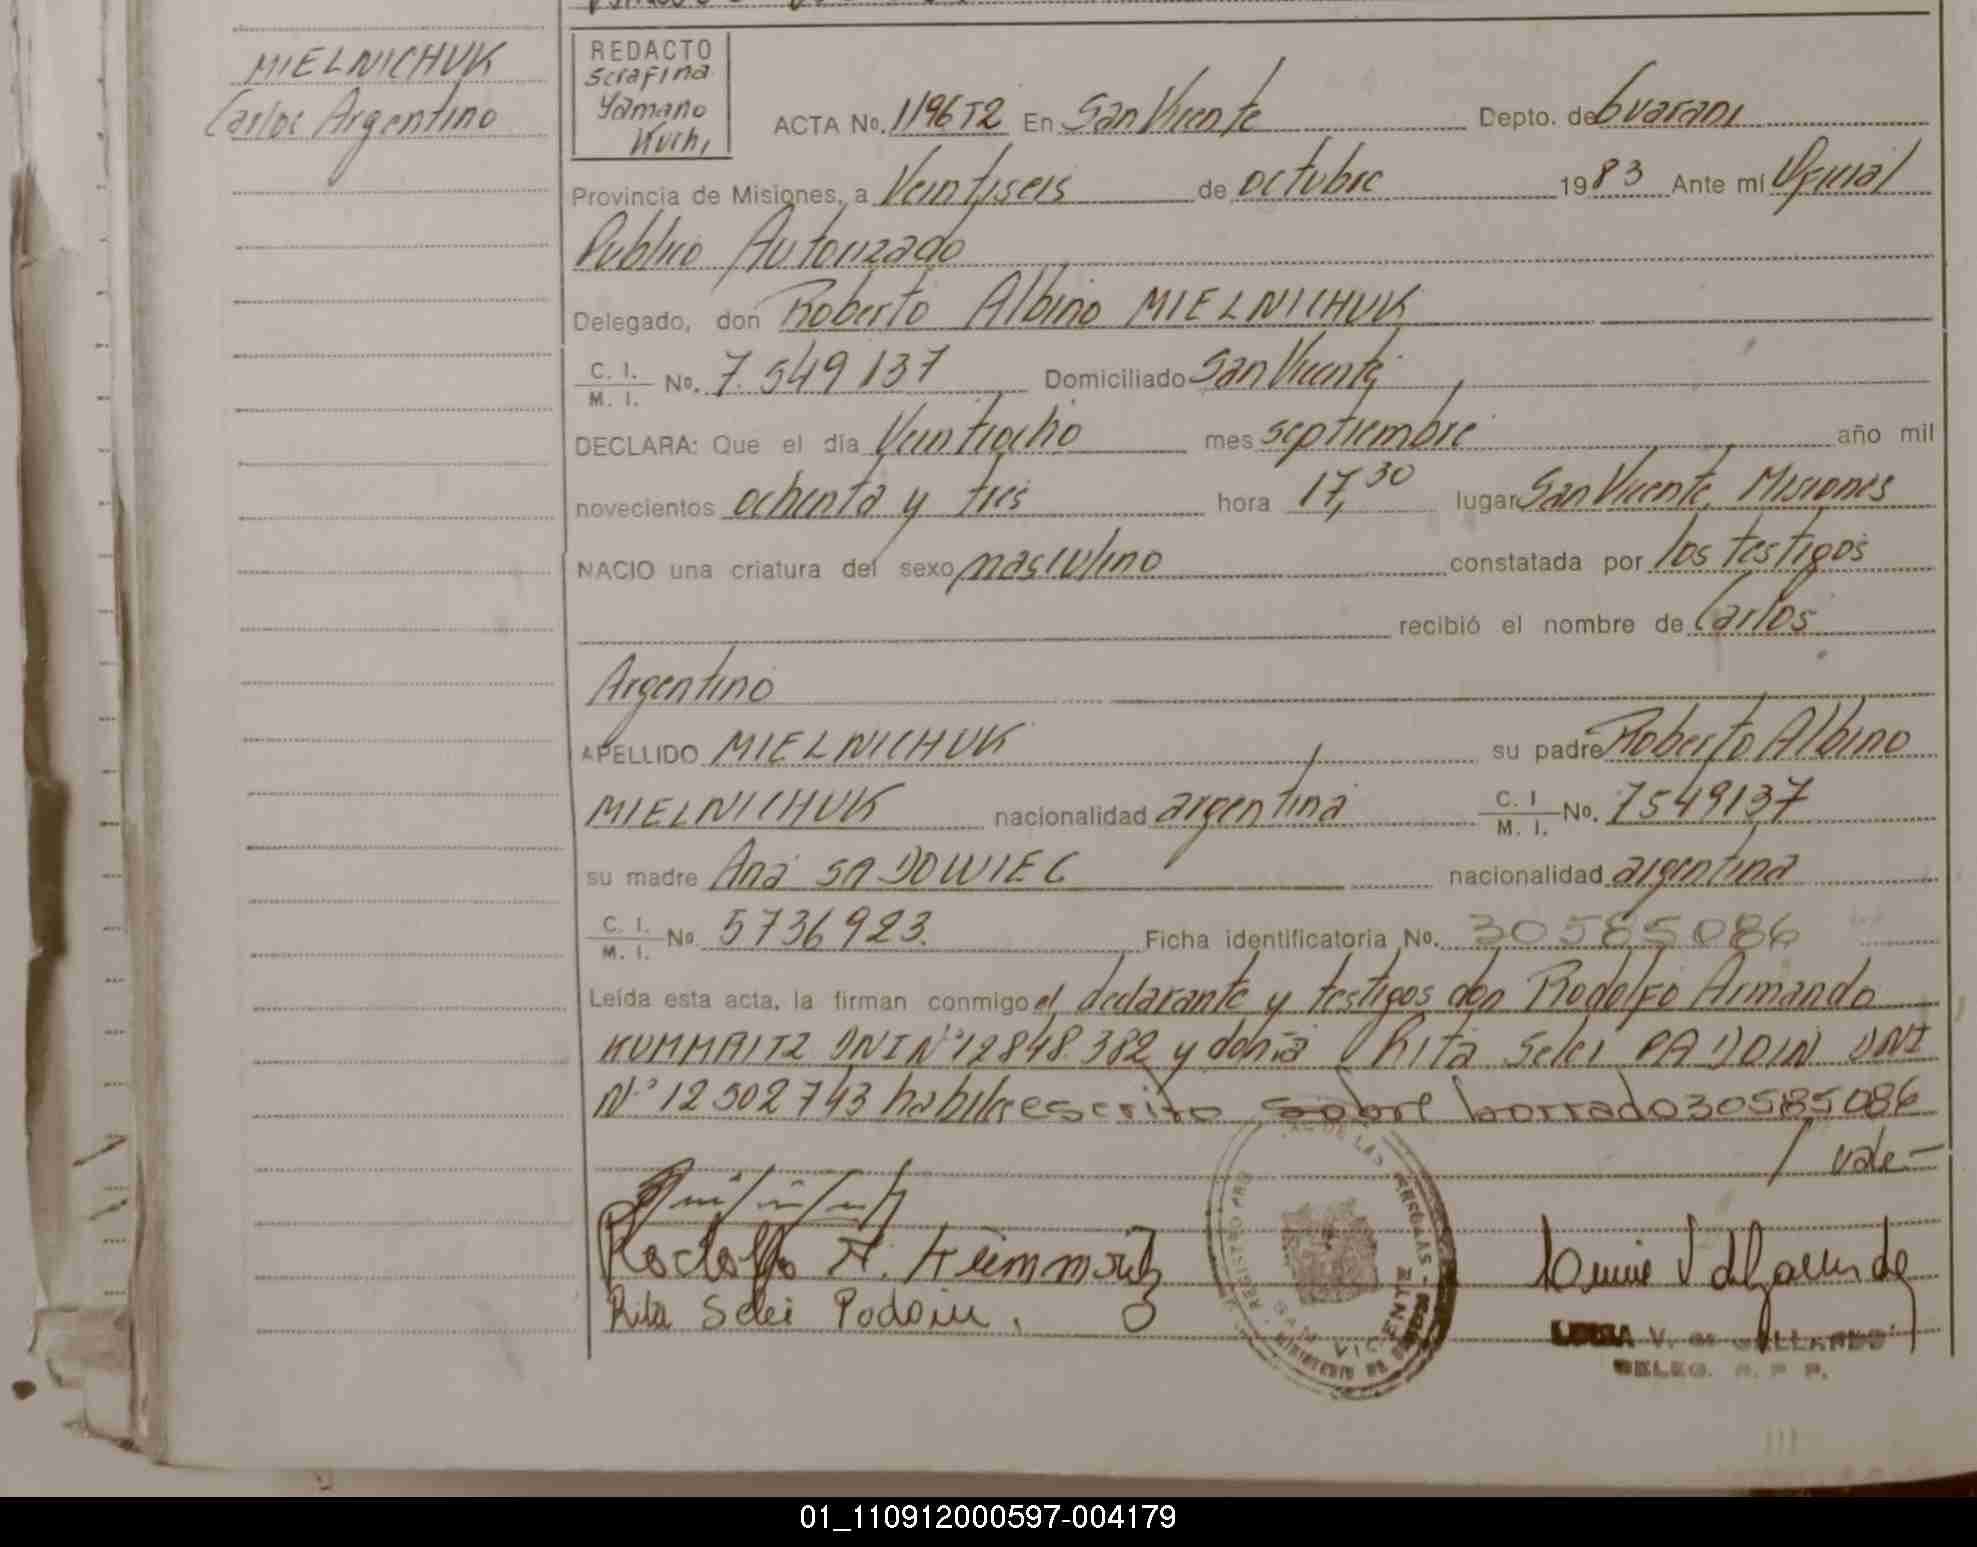 MIELNICHUK
Carlos Argentino
REDACTO
Serafina
Yamano
Kuchi
ACTA No. 1196 T2 En San Vicente Depto. de Guarani
Provincia de Misiones, a Veintiseis de octubre 1983 Ante mí Oficial
Publico Autorizado
Delegado, don Roberto Albino MIELNICHUK
C. I. / M. I. No. 7.549137 Domiciliado San Vicente
DECLARA: Que el día Veintiocho mes septiembre año mil
novecientos ochenta y tres hora 17,30 lugar San Vicente, Misiones
NACIO una criatura del sexo masculino constatada por los testigos
recibió el nombre de Carlos
Argentino
APELLIDO MIELNICHUK su padre Roberto Albino
MIELNICHUK nacionalidad argentina C. I / M. I. No. 7549137
su madre Ana SADOWIEC nacionalidad argentina
C. I. / M. I. No 5736923. Ficha identificatoria No. 30585086
Leída esta acta, la firman conmigo el declarante y testigos don Rodolfo Armando
KUMMRITZ DNI Nº 12848.382 y doña Rita Selei PADOIN DNI
Nº 12502743 habiles escrito sobre borrado 30585086
/ vale-
Rodolfo A. Kummritz
Rita Selei Padoin.
REGISTRO
DE LAS
SAN VICENTE
MINISTERIO DE
V. GALLARDO
DELEG. R. P P.
01_110912000597-004179